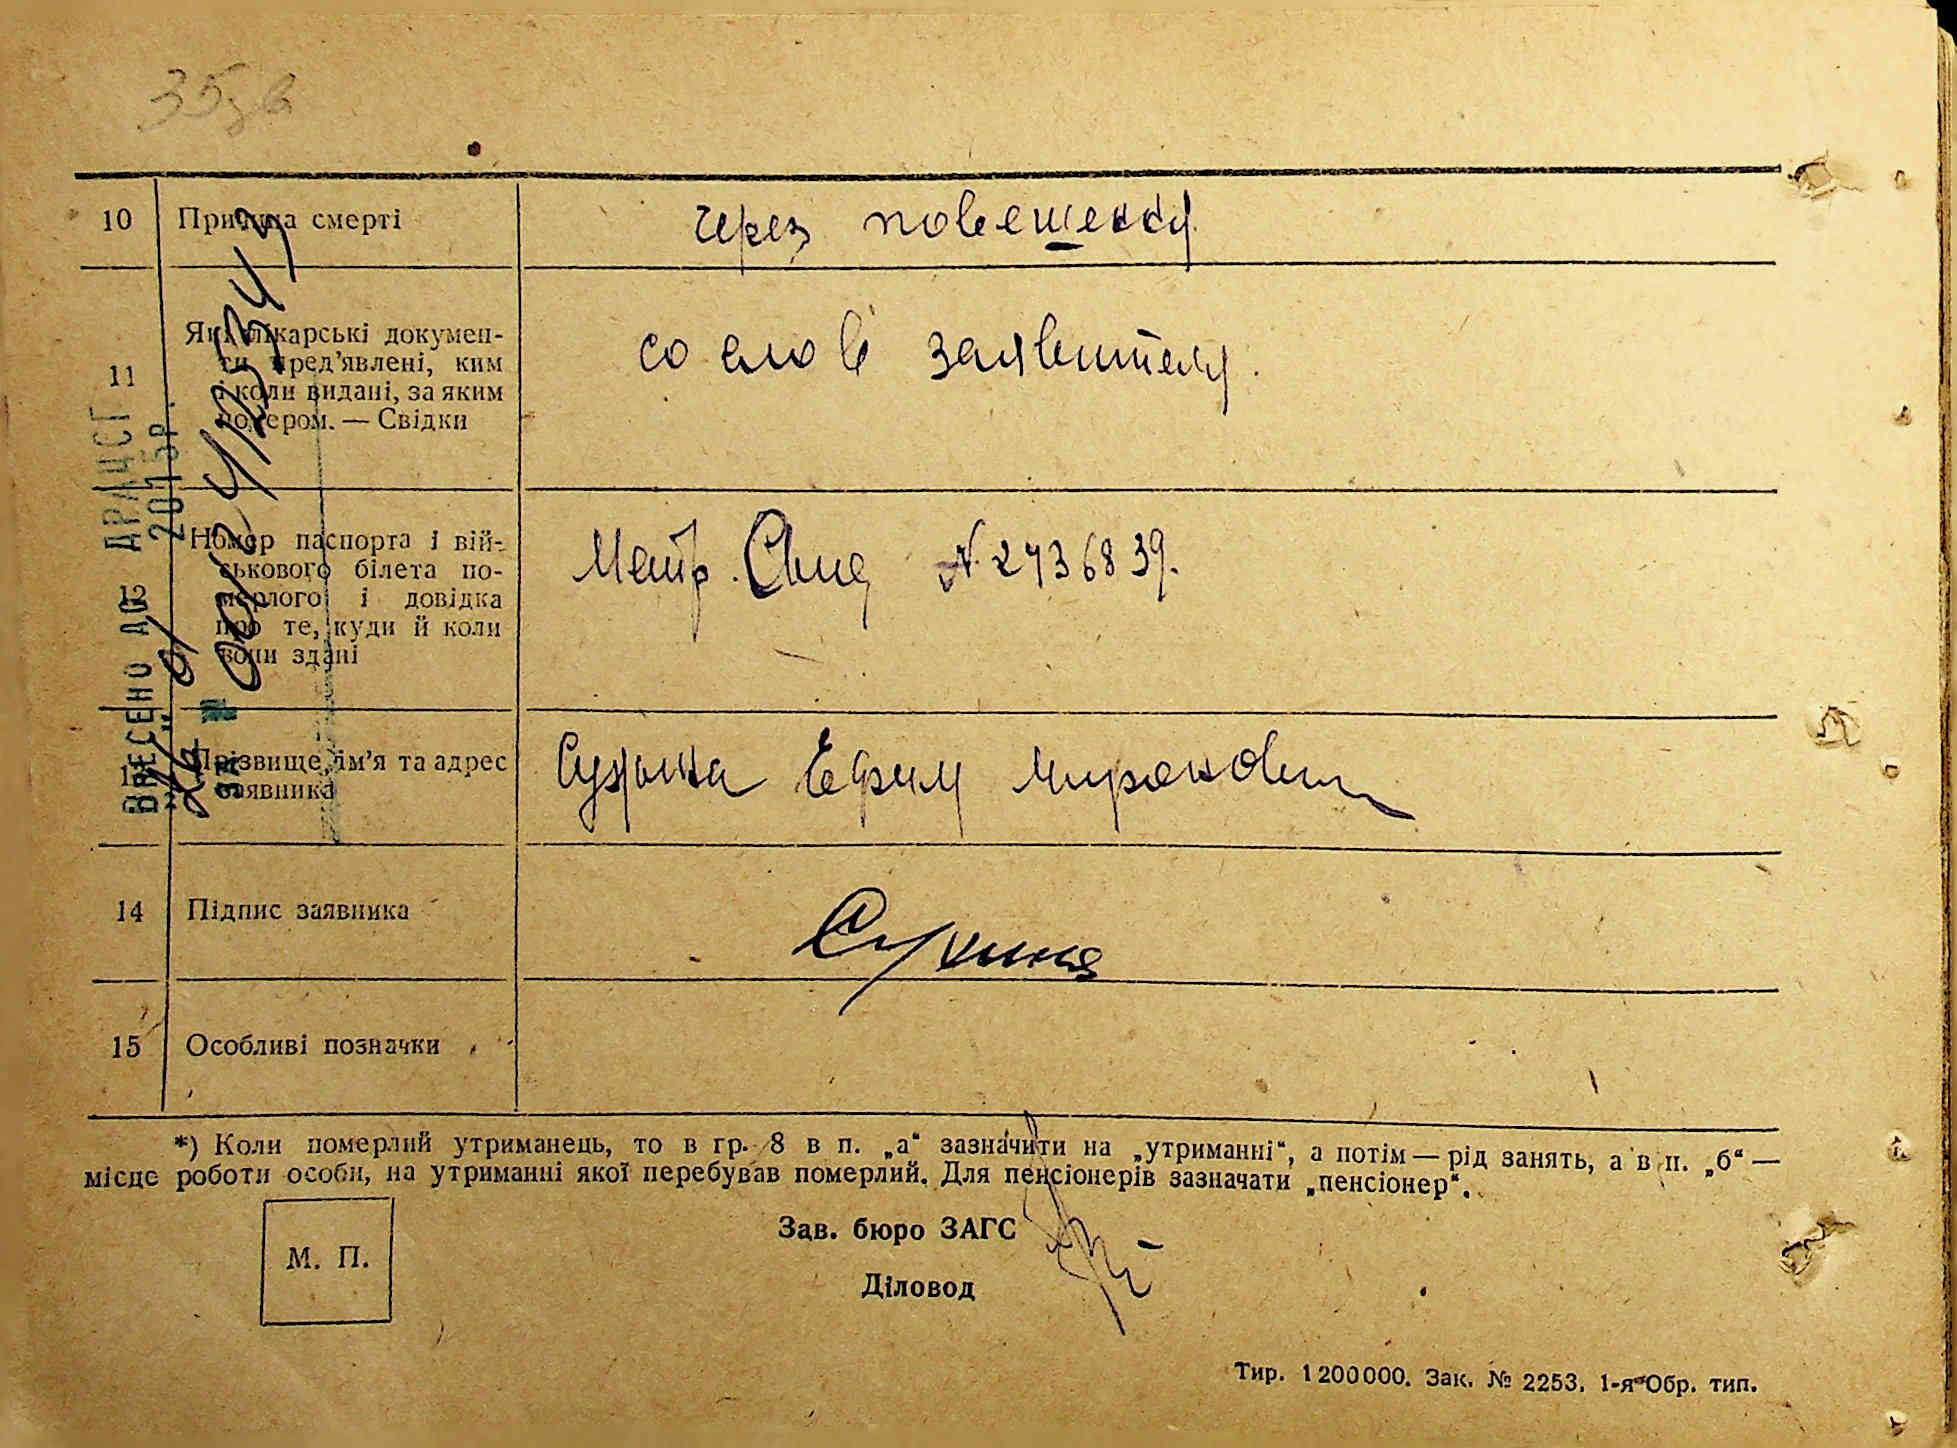 10 Причина смерті через повешеню
11 Які лікарські докумен-
ти пред’явлені, ким
і коли видані, за яким
номером. — Свідки
со слов заявителя.
12 Номер паспорта і вій-
ськового білета по-
мерлого і довідка
про те, куди й коли
вони здані
Метр. Свид № 2436839.
13 Прізвище, ім’я та адрес
заявника
Ефим Миронович
14 Підпис заявника
15 Особливі позначки
ВНЕСЕНО ДО ДРАЦСГ
2015р.
*) Коли померлий утриманець, то в гр. 8 в п. „а“ зазначити на „утриманні“, а потім — рід занять, а в п. „б“ —
місце роботи особи, на утриманні якої перебував померлий. Для пенсіонерів зазначати „пенсіонер“.
М. П.
Зав. бюро ЗАГС
Діловод
Тир. 1200000. Зак. № 2253. 1-я Обр. тип.